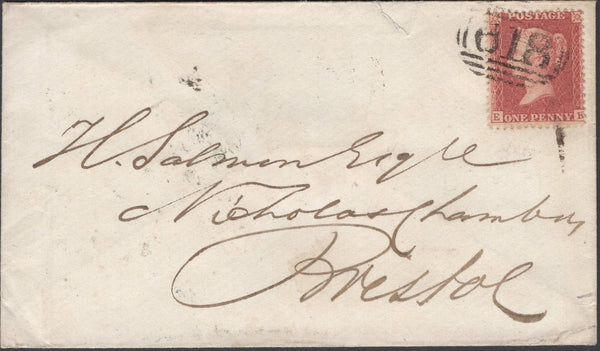 POSTAGE
618
E E
ONE PENNY
H. Salmon Esqre
Nicholas Chambers
Bristol